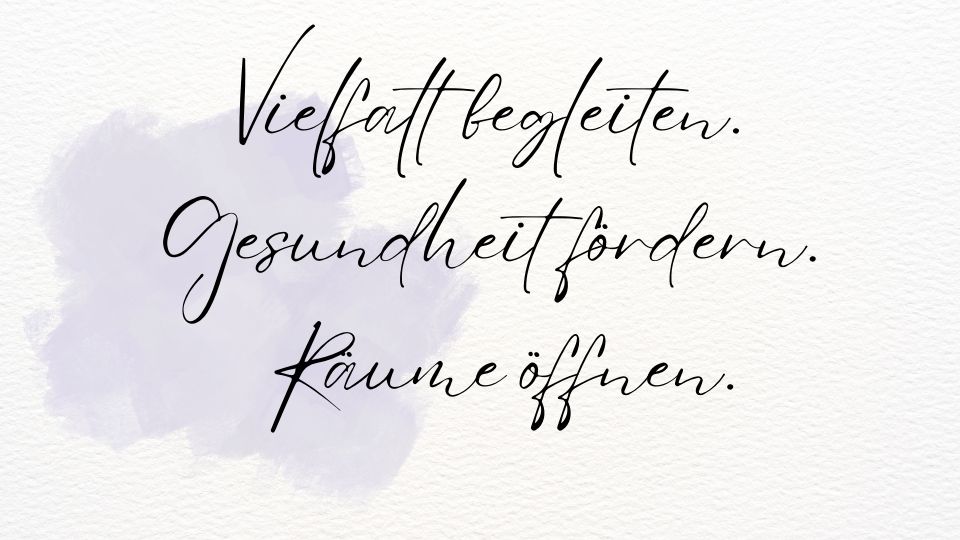 Vielfalt begleiten.
Gesundheit fördern.
Räume öffnen.